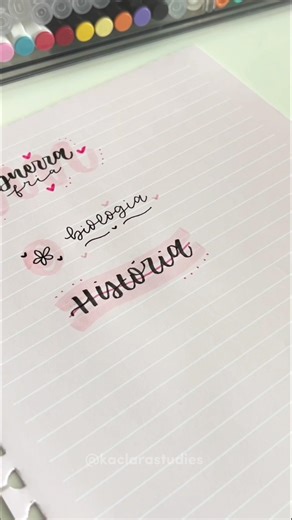 guerra
fria
biologia
História
@kaclarastudies